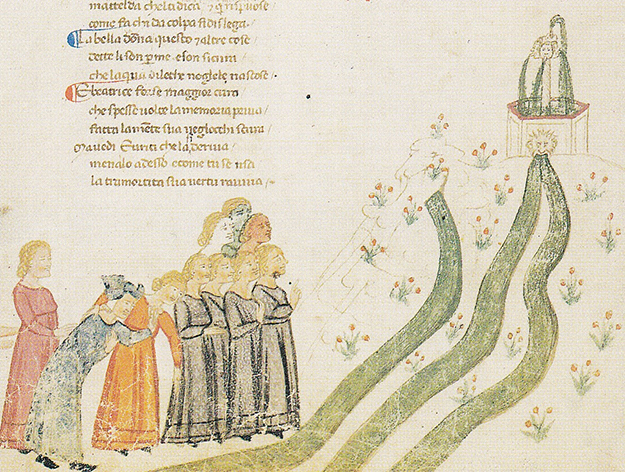 mattelda chelti dica / 7 q̄ rispuose
come fa chi da colpa si dislega·
La bella dōna questo 7 altre cose
dette li son p̄ me· e son sicuro
che laqua di lethe nogliele nascose·
E beatrice forse maggior cura
che spesse volte la memoria priua
fatto la mente sua negliocchi scura·
ma uedi Eunoe che la deriua
menalo adesso e come tu se usa
la tramortita sua uertu rauiua /